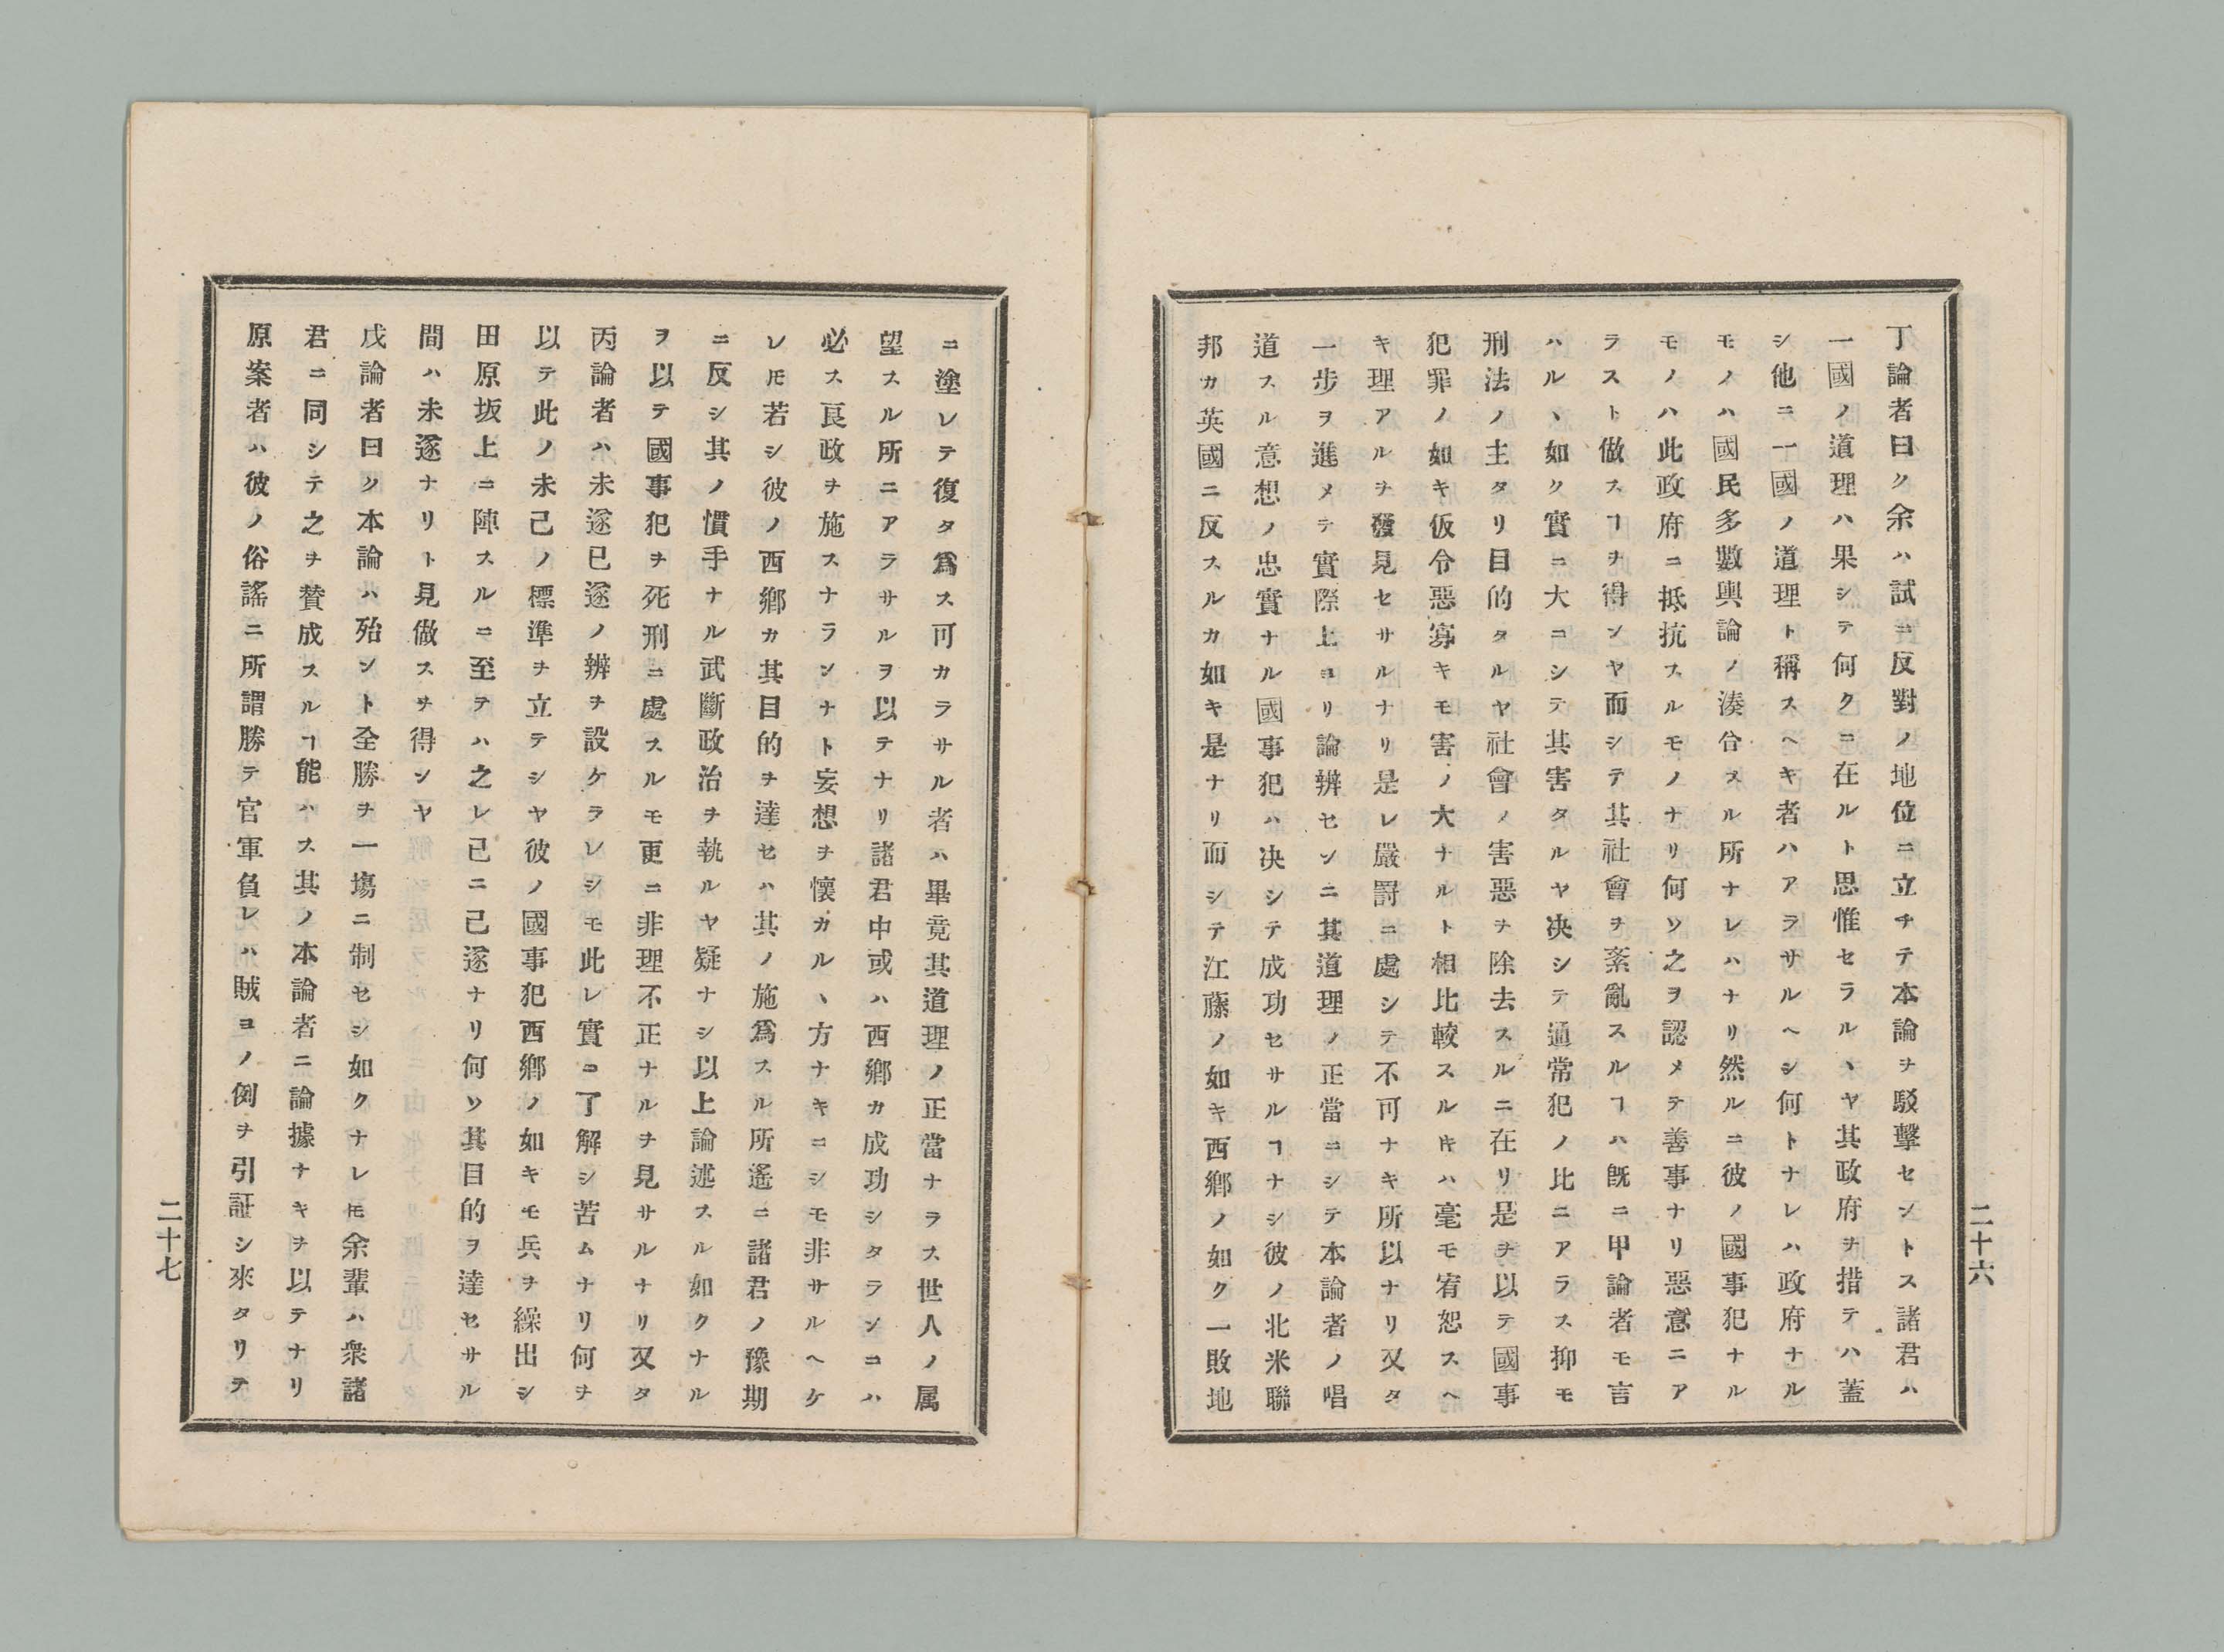 丁論者曰ク余ハ試ニ反對ノ地位ニ立チテ本論ヲ駁擊セントス諸君ハ
一國ノ道理ハ果シテ何クニ在ルト思惟セラルヽヤ其政府ヲ措テハ蓋
シ他ニ一國ノ道理ト稱スヘキ者ハアラサルヘシ何トナレハ政府ナル
モノハ國民多數輿論ノ湊合スル所ナレハナリ然ルニ彼ノ國事犯ナル
モノハ此政府ニ抵抗スルモノナリ何ソ之ヲ認メテ善事ナリ惡意ニア
ラスト做スヿヲ得ンヤ而シテ其社會ヲ紊亂スルヿハ既ニ甲論者モ言
ハルヽ如ク實ニ大ニシテ其害タルヤ决シテ通常犯ノ比ニアラス抑モ
刑法ノ主タリ目的タルヤ社會ノ害惡ヲ除去スルニ在リ是ヲ以テ國事
犯罪ノ如キ仮令惡寡キモ害ノ大ナルト相比較スルキハ毫モ宥恕スヘ
キ理アルヲ發見セサルナリ是レ嚴罸ニ處シテ不可ナキ所以ナリ又タ
一步ヲ進メテ實際上ヨリ論辨センニ其道理ノ正當ニシテ本論者ノ唱
道スル意想ノ忠實ナル國事犯ハ决シテ成功セサルヿナシ彼ノ北米聯
邦カ英國ニ反スルカ如キ是ナリ而シテ江藤ノ如キ西鄕ノ如ク一敗地
二十六
ニ塗レテ復タ爲ス可カラサル者ハ畢竟其道理ノ正當ナラス世人ノ属
望スル所ニアラサルヲ以テナリ諸君中或ハ西鄕カ成功シタランニハ
必ス良政ヲ施スナランナト妄想ヲ懷カルヽ方ナキニシモ非サルヘケ
レ𪜈若シ彼ノ西鄕カ其目的ヲ達セハ其ノ施爲スル所遙ニ諸君ノ豫期
ニ反シ其ノ慣手ナル武斷政治ヲ執ルヤ疑ナシ以上論述スル如クナル
ヲ以テ國事犯ヲ死刑ニ處スルモ更ニ非理不正ナルヲ見サルナリ又タ
丙論者ハ未遂已遂ノ辨ヲ設ケラレシモ此レ實ニ了解シ苦ムナリ何ヲ
以テ此ノ未己ノ標準ヲ立テシヤ彼ノ國事犯西鄕ノ如キモ兵ヲ繰出シ
田原坂上ニ陣スルニ至テハ之レ已ニ己遂ナリ何ソ其目的ヲ達セサル
間ハ未遂ナリト見做スヲ得ンヤ
戊論者曰ク本論ハ殆ント全勝ヲ一塲ニ制セシ如クナレ𪜈余輩ハ衆諸
君ニ同シテ之ヲ賛成スルヿ能ハス其ノ本論者ニ論據ナキヲ以テナリ
原案者ハ彼ノ俗謠ニ所謂勝テ官軍負レハ賊ヨノ例ヲ引証シ來タリテ
二十七